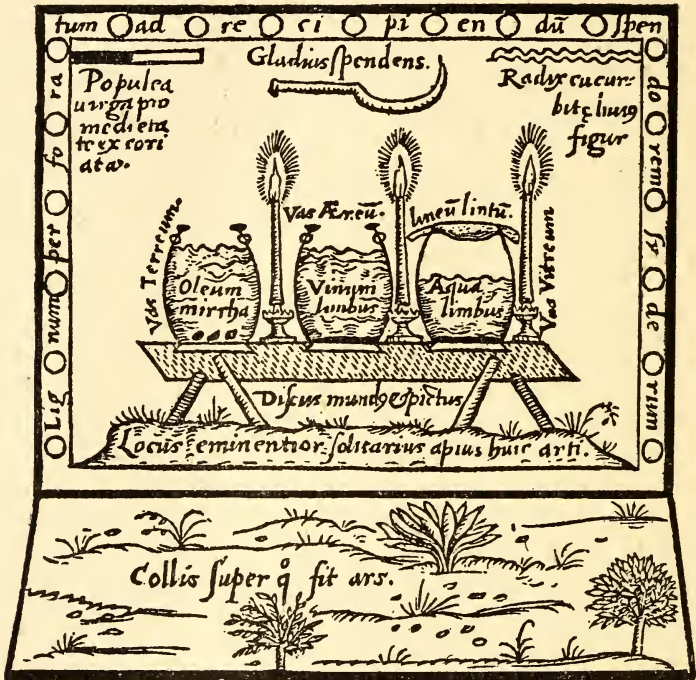 Lig num per fo ra
tum ad re ci pi en dū ſpen
do rem ſy de rium
Gladius ſpendens.
Populea
uirga pro
medieta
te ex cori
ata.
Radix cucur=
bitę huiꝰ
figur
Vas Terreum.
Vas Æreū.
lineū lintū.
Vas Vitreum
Oleum
mirrha
Vinum
limbus
Aqua
limbus
Diſcus mundꝰ & pictus
Locus eminentior ſolitarius apius huic arti.
Collis ſuper q̊ fit ars.